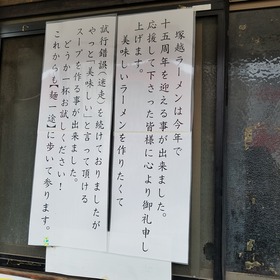 塚越ラーメンは今年で
十五周年を迎える事が出来ました。
応援して下さった皆様に心より御礼申し
上げます。
美味しいラーメンを作りたくて
試行錯誤(迷走)を続けておりましたが
やっと「美味しい」と言って頂ける
スープを作る事が出来ました。
どうか一杯お試しください!
これからも【麺一途】に歩いて参ります。